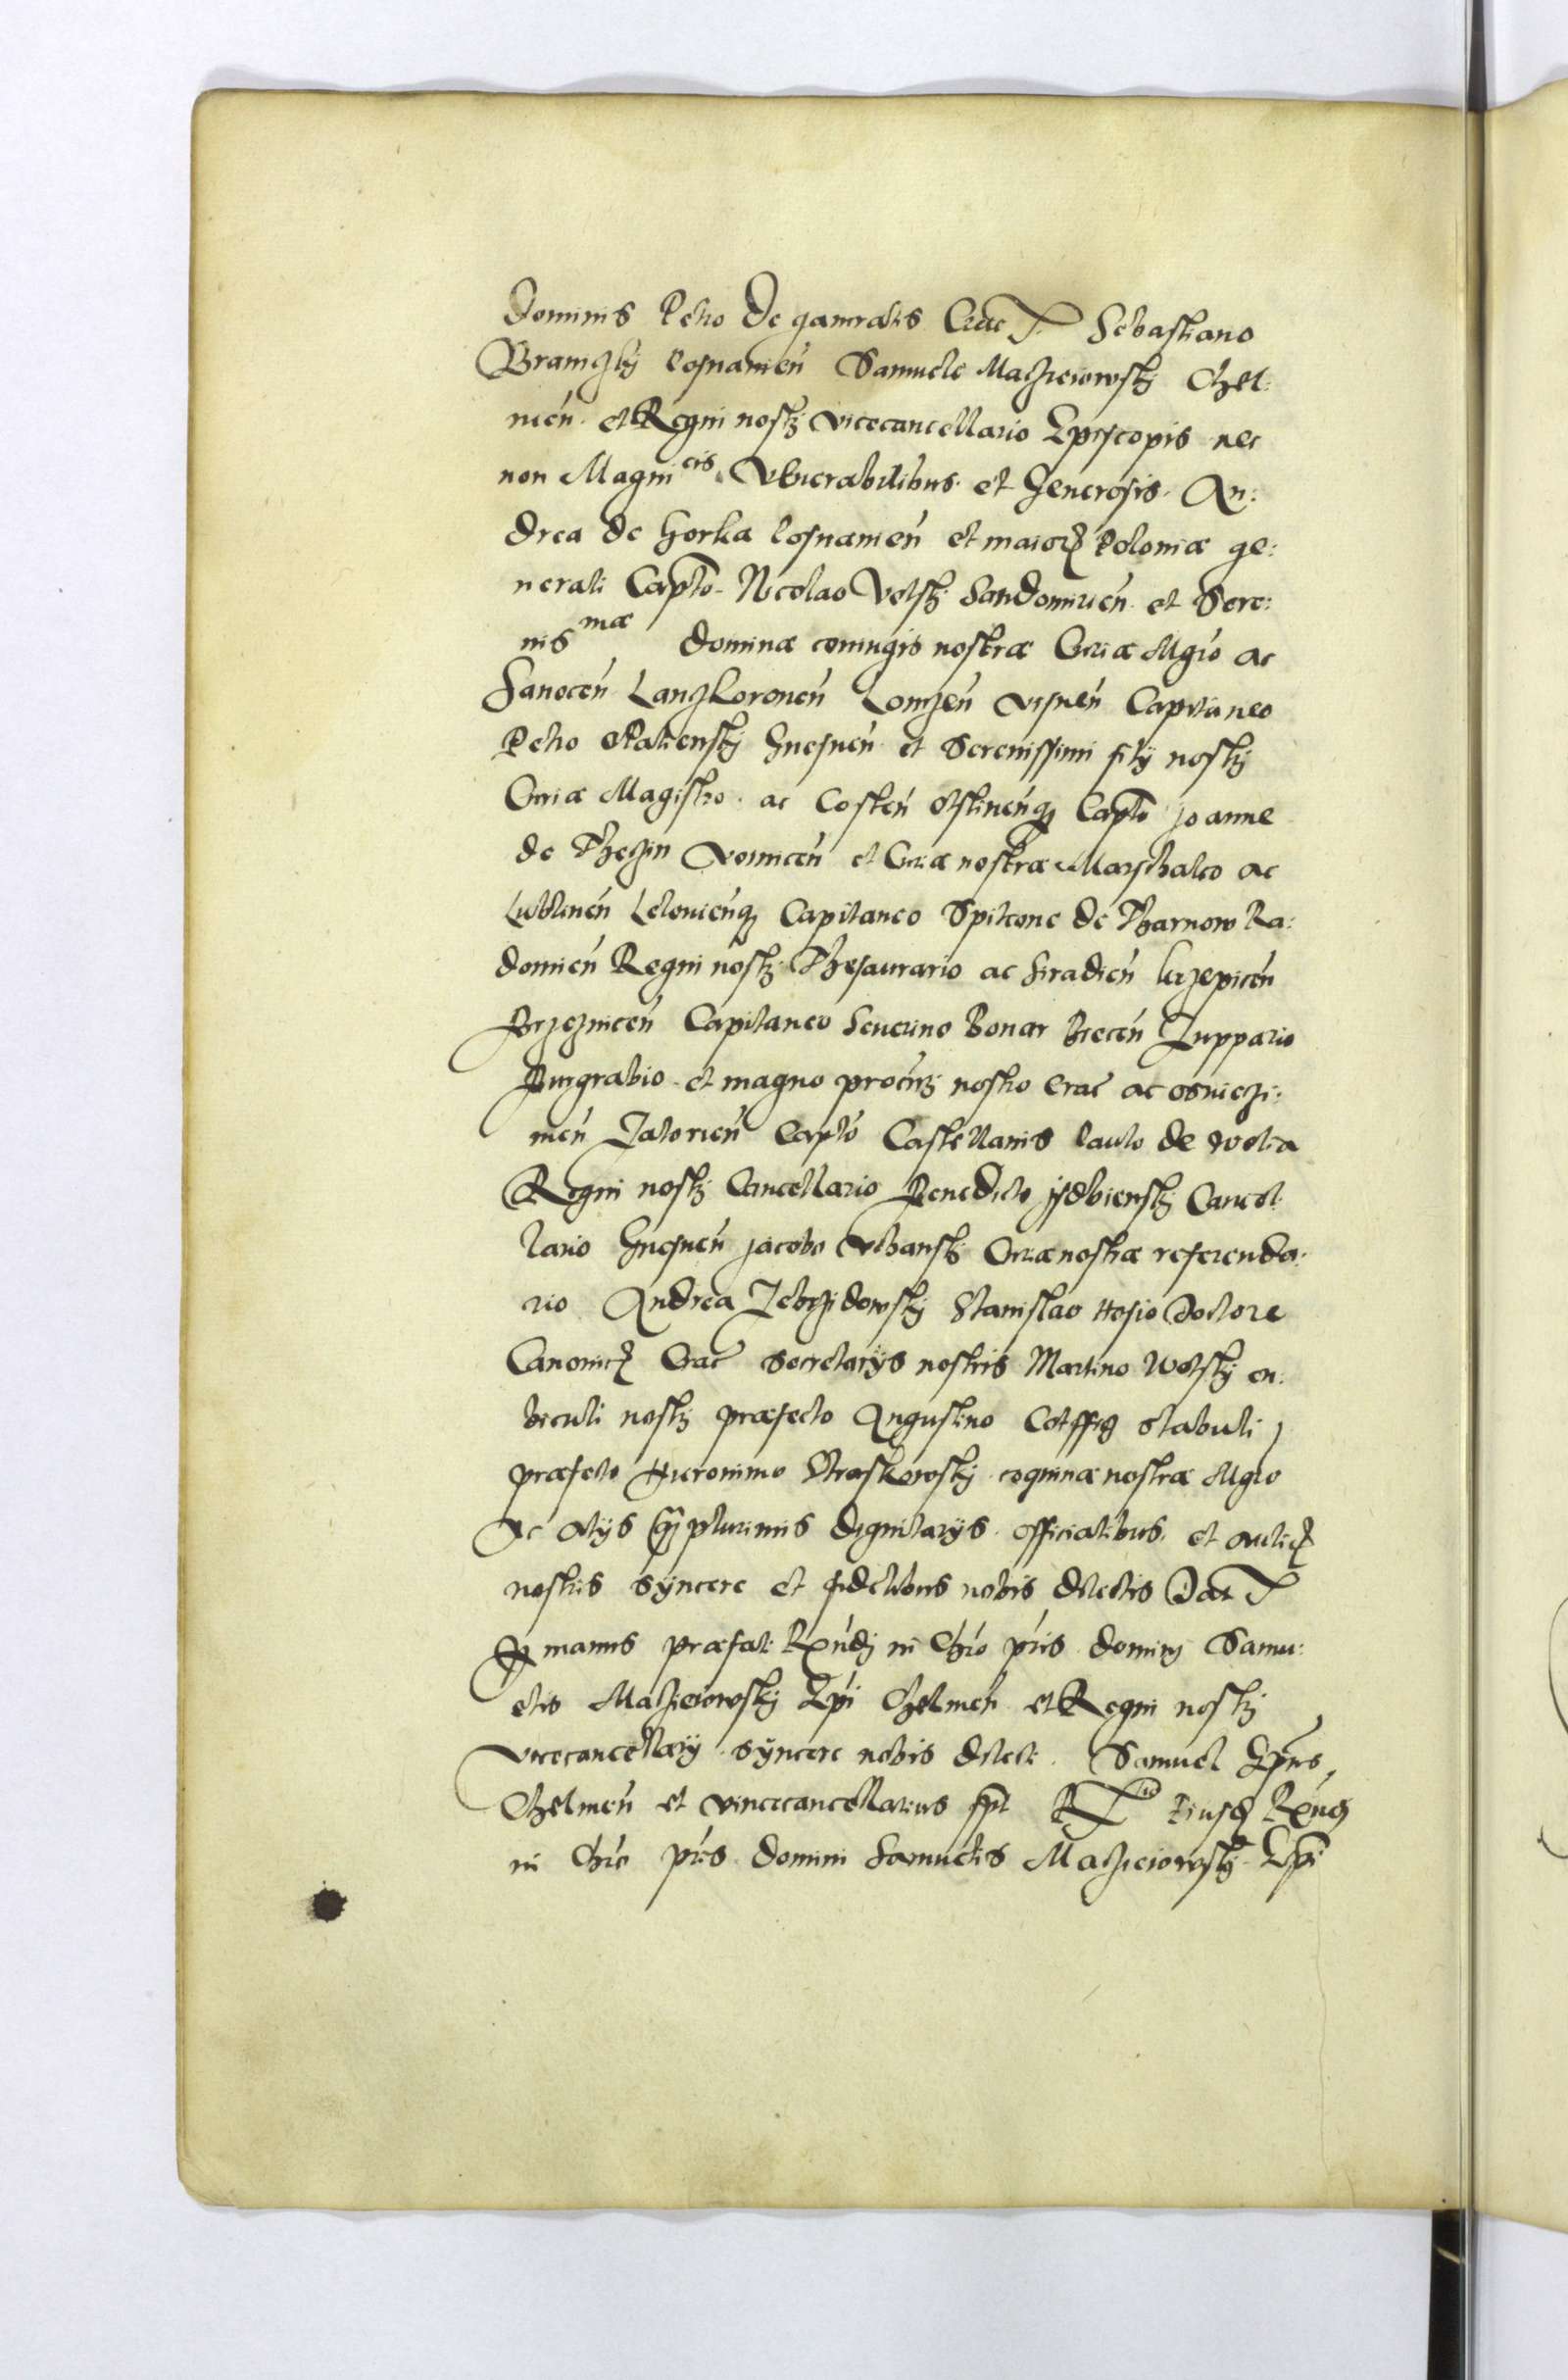 Dominis Petro de gamratis Crac. Sebastiano
Braniczkj Posnanien Samuele Maczieiowskj Chel:
men. et Regni nostrj vicecancellario Episcopis nec
non Magnicis. Venerabilibus. et Generosis. An:
drea de Gorka Posnanien et maior Poloniæ ge:
nerali Capto. Nicolao Volskj Sandomirien. et Sere:
nismæ dominæ coniugis nostræ Curiæ Mgro ac
Sanocen Lanzkoronen Lomzen visnen Capitaneo
Petro Opalienskj Gnesnen et Serenissimi filij nostrj
Curiæ Magistro. ac Costen Olstinenq Capto Joanne
de Theczin Voinicen et Curiæ nostræ Marschalco ac
Lublinen Lelovienq Capitaneo Spitcone de Tharnow Ra:
domien Regni nostrj Thesaurario ac Siradien krzepicen
Brzeznicen Capitaneo Severino Bonar Biecen Zuppario
Burgrabio. et magno procurj nostro Crac ac osviczi:
men Zatorien Capto Castellanis Paulo de Wolia
Regni nostrj Cancellario Benedicto jsdbienskj Cancel
lario Gnesnen jacobo Vchanskj Curiæ nostræ referenda:
rio Andrea Zebrzidowskj Stanislao Hosio Doctore
Canonic Crac secretarijs nostris Martino Wolskj cu:
biculi nostrj præfecto Augustino Cotffig stabuli
præfecto Hieronimo Straskowskj coquinæ nostræ Mgro
Ac alijs q plurimis dignitarijs. officialibus. et aulic
nostris syncere et fidelibus nobis dilectis Dat
P manus præfati Rndj in Chro pris dominj Samu:
elis Maczieiowskj Epi Chelmen et Regni nostrj
vicecancellarij. syncere nobis dilecti. Samuel Epus,
Chelmen et vincecancellarius sspt R Eiusd Rndj
in Chro pris domini Samuelis Maczieiowskj Epi